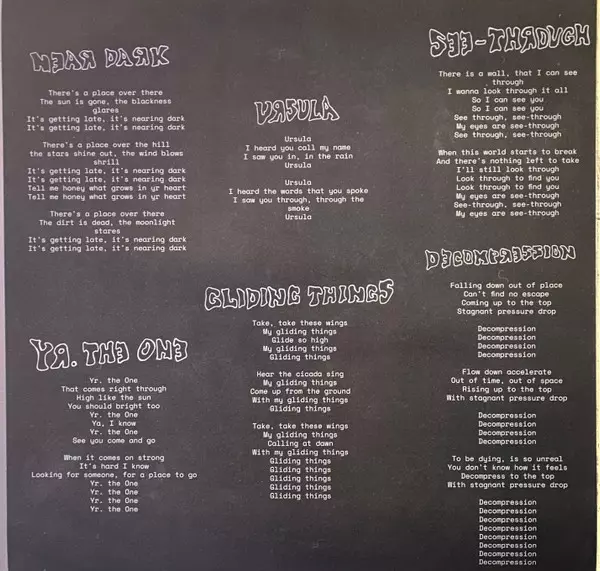 NEAR DARK
There's a place over there
The sun is gone, the blackness
glares
It's getting late, it's nearing dark
It's getting late, it's nearing dark
There's a place over the hill
the stars shine out, the wind blows
shrill
It's getting late, it's nearing dark
It's getting late, it's nearing dark
Tell me honey what grows in yr heart
Tell me honey what grows in yr heart
There's a place over there
The dirt is dead, the moonlight
stares
It's getting late, it's nearing dark
It's getting late, it's nearing dark
YR. THE ONE
Yr. the One
That comes right through
High like the sun
You should bright too
Yr. the One
Ya, I know
Yr. the One
See you come and go
When it comes on strong
It's hard I know
Looking for someone, for a place to go
Yr. the One
Yr. the One
Yr. the One
Yr. the One
Yr. the One
URSULA
Ursula
I heard you call my name
I saw you in, in the rain
Ursula
Ursula
I heard the words that you spoke
I saw you through, through the
smoke
Ursula
GLIDING THINGS
Take, take these wings
My gliding things
Glide so high
My gliding things
Gliding things
Hear the cicada sing
My gliding things
Come up from the ground
With my gliding things
Gliding things
Take, take these wings
My gliding things
Calling at dawn
With my gliding things
Gliding things
Gliding things
Gliding things
Gliding things
Gliding things
SEE-THROUGH
There is a wall, that I can see
through
I wanna look through it all
So I can see you
So I can see you
See through, see-through
My eyes are see-through
See through, see-through
When this world starts to break
And there's nothing left to take
I'll still look through
Look through to find you
Look through to find you
My eyes are see-through
See-through, see-through
My eyes are see-through
DECOMPRESSION
Falling down out of place
Can't find no escape
Coming up to the top
Stagnant pressure drop
Decompression
Decompression
Decompression
Decompression
Flow down accelerate
Out of time, out of space
Rising up to the top
With stagnant pressure drop
Decompression
Decompression
Decompression
Decompression
To be dying, is so unreal
You don't know how it feels
Decompress to the top
With stagnant pressure drop
Decompression
Decompression
Decompression
Decompression
Decompression
Decompression
Decompression
Decompression